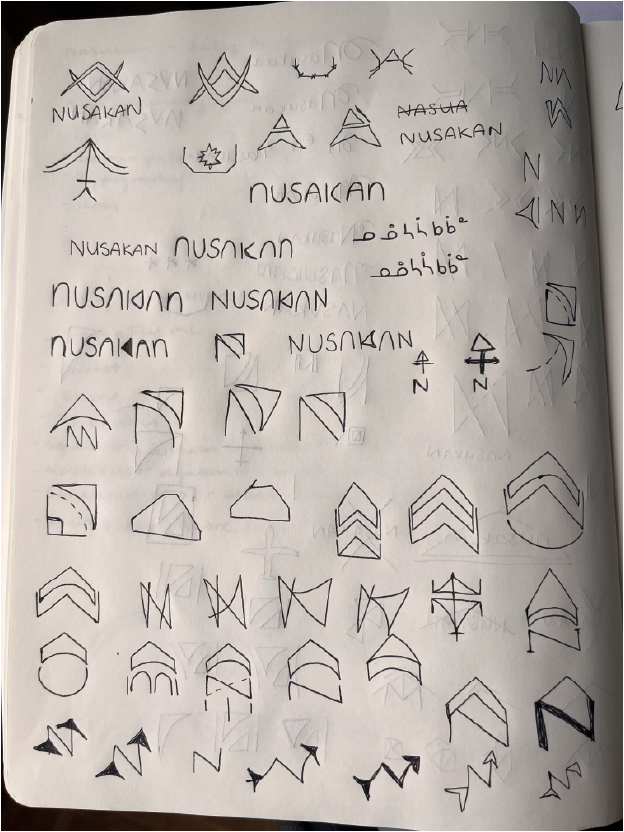 NUSAKAN
NASUA
NUSAKAN
N
NUSAKAN
N N
NUSAKAN NUSAKAN
NUSAKAN NUSAKAN
NUSAKAN NUSAKAN
N N
N